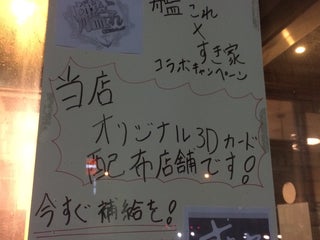 艦これ
×
すき家
コラボキャンペーン
当店
オリジナル3Dカード
配布店舗です!
今すぐ補給を!